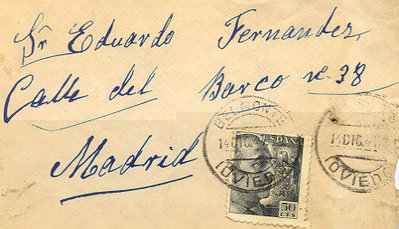 Sr Eduardo Fernandez
Calle del Barco nº 38
Madrid
BELMONTE
14 DIC. 4
(OVIEDO)
ESPAÑA
50
CTS
14 DIC. 4
(OVIEDO